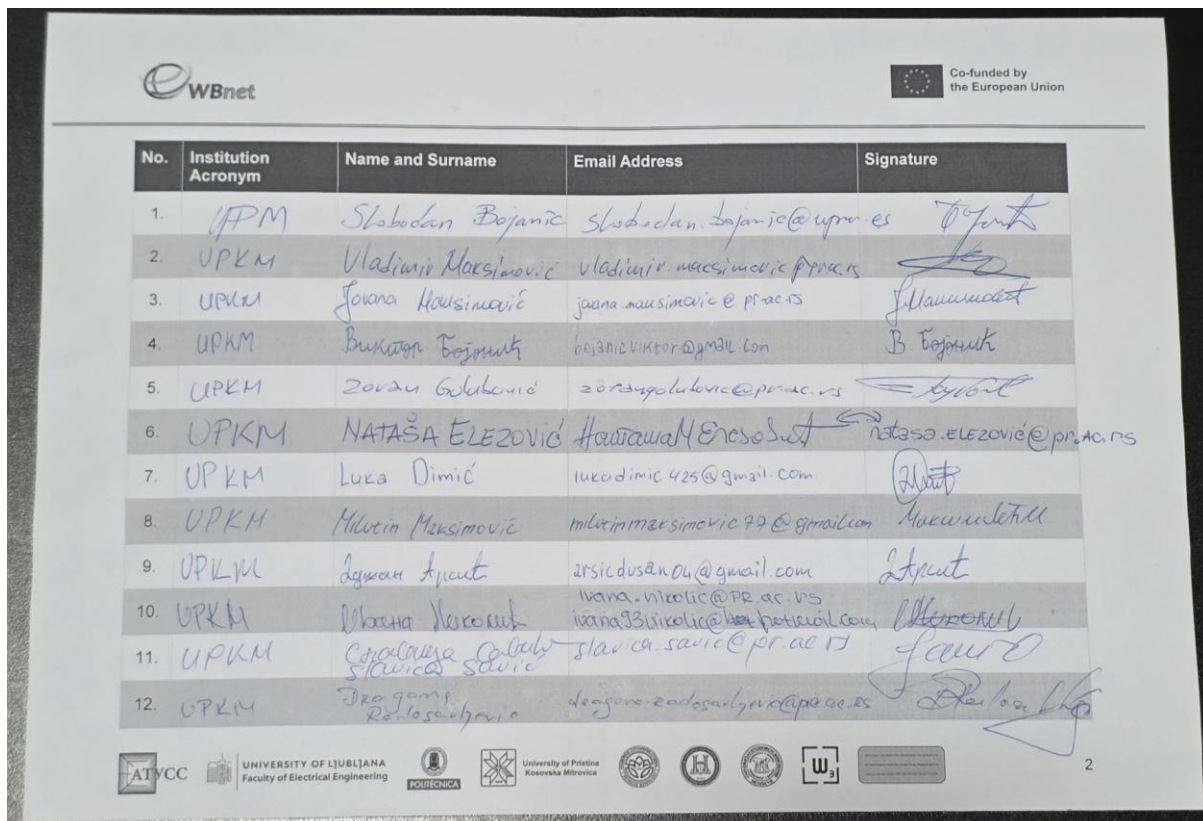 WBnet
Co-funded by
the European Union
No. Institution Acronym Name and Surname Email Address Signature
1. UPM Slobodan Bojanic slobodan.bojanic@upm.es
2. UPKM Vladimir Maksimović vladimir.maksimovic@pr.ac.rs
3. UPKM Jovana Maksimović jovana.maksimovic@pr.ac.rs
4. UPKM Виктор Бојанић bojanicviktor@gmail.com В. Бојанић
5. UPKM Zoran Golubović zorangolubovic@pr.ac.rs
6. UPKM NATAŠA ELEZOVIĆ natasa.ELEZOVIĆ@pr.AC.rs
7. UPKM Luka Dimić lukadimic425@gmail.com
8. UPKM Milutin Maksimović milutinmaksimovic77@gmail.com
9. UPKM Душан Арсић arsicdusan04@gmail.com
ivana.nikolic@PR.ac.rs
10. UPKM Ивана Николић ivana93nikolic@hotmail.com
11. UPKM slavica.savic@pr.ac.rs
Slavica Savić
12. UPKM Dragana Radosavljevic dragana.radosavljevic@pr.ac.rs
АТУСС
UNIVERSITY OF LJUBLJANA
Faculty of Electrical Engineering
POLITÉCNICA
University of Pristina
Kosovska Mitrovica
2